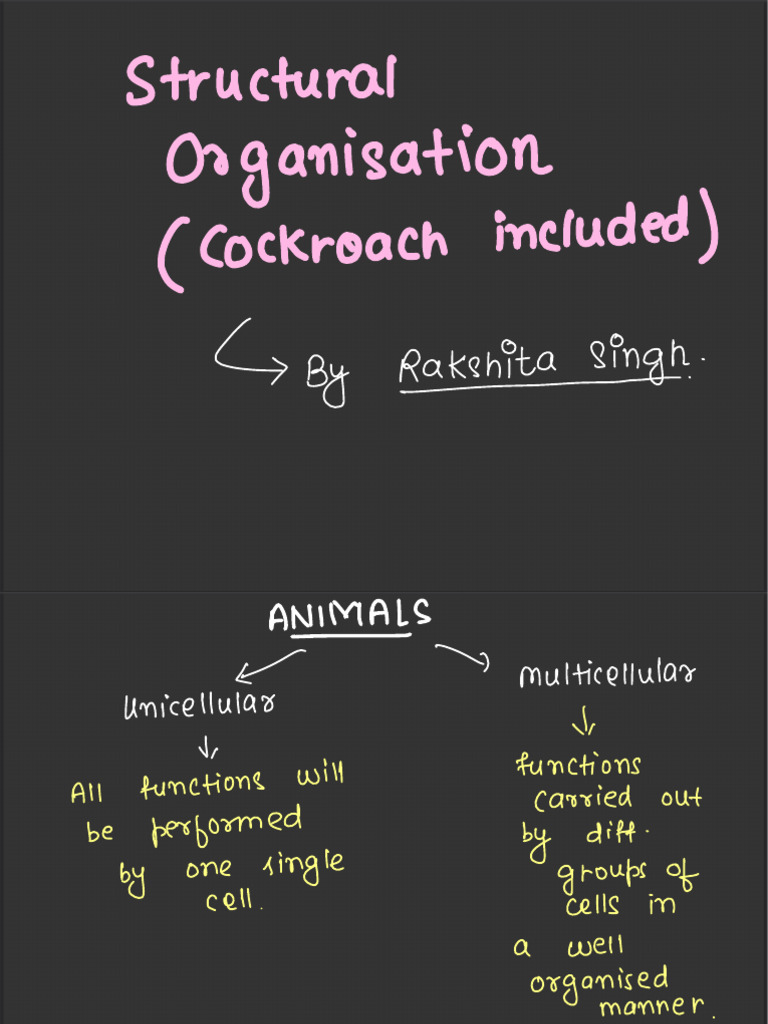 Structural
Organisation
(Cockroach included)
By Rakshita Singh.
ANIMALS
Unicellular
All functions will
be performed
by one single
cell.
Multicellular
functions
carried out
by diff.
groups of
cells in
a well
organised
manner.